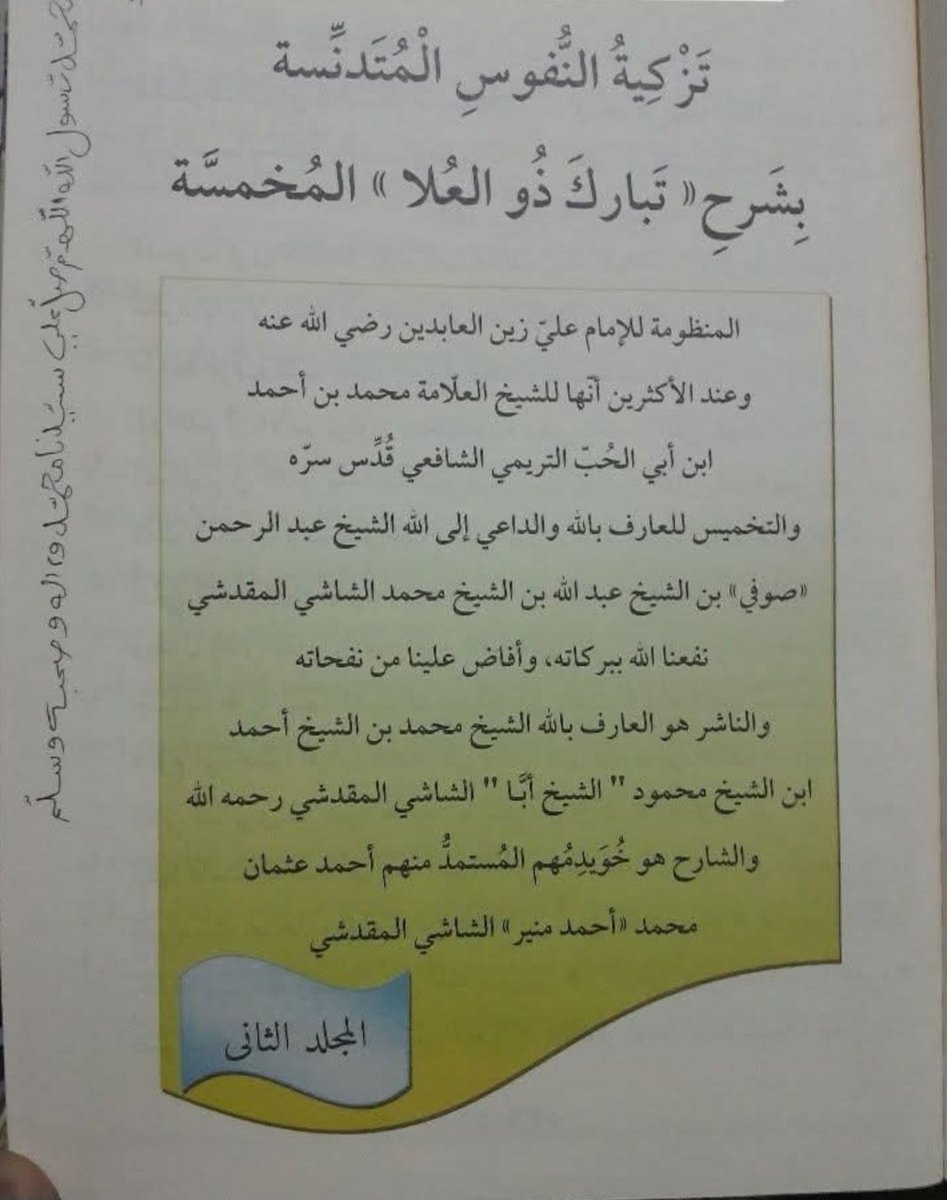 تَزْكِيةُ النُّفوسِ الْمُتَدنِّسة
بِشَرحِ « تَباركَ ذُو العُلا » المُخمسَّة
المنظومة للإمام عليّ زين العابدين رضي الله عنه
وعند الأكثرين أنّها للشيخ العلّامة محمد بن أحمد
ابن أبي الحُبّ التريمي الشافعي قُدِّس سرّه
والتخميس للعارف بالله والداعي إلى الله الشيخ عبد الرحمن
«صوفي» بن الشيخ عبد الله بن الشيخ محمد الشاشي المقدشي
نفعنا الله ببركاته، وأفاض علينا من نفحاته
والناشر هو العارف بالله الشيخ محمد بن الشيخ أحمد
ابن الشيخ محمود " الشيخ أبَّا " الشاشي المقدشي رحمه الله
والشارح هو خُوَيدِمُهم المُستمدُّ منهم أحمد عثمان
محمد «أحمد منير» الشاشي المقدشي
المجلد الثانى
محمّد رسول الله اللّهمّ صلّ على سيّدنا محمّد وءاله وصحبه وسلّم